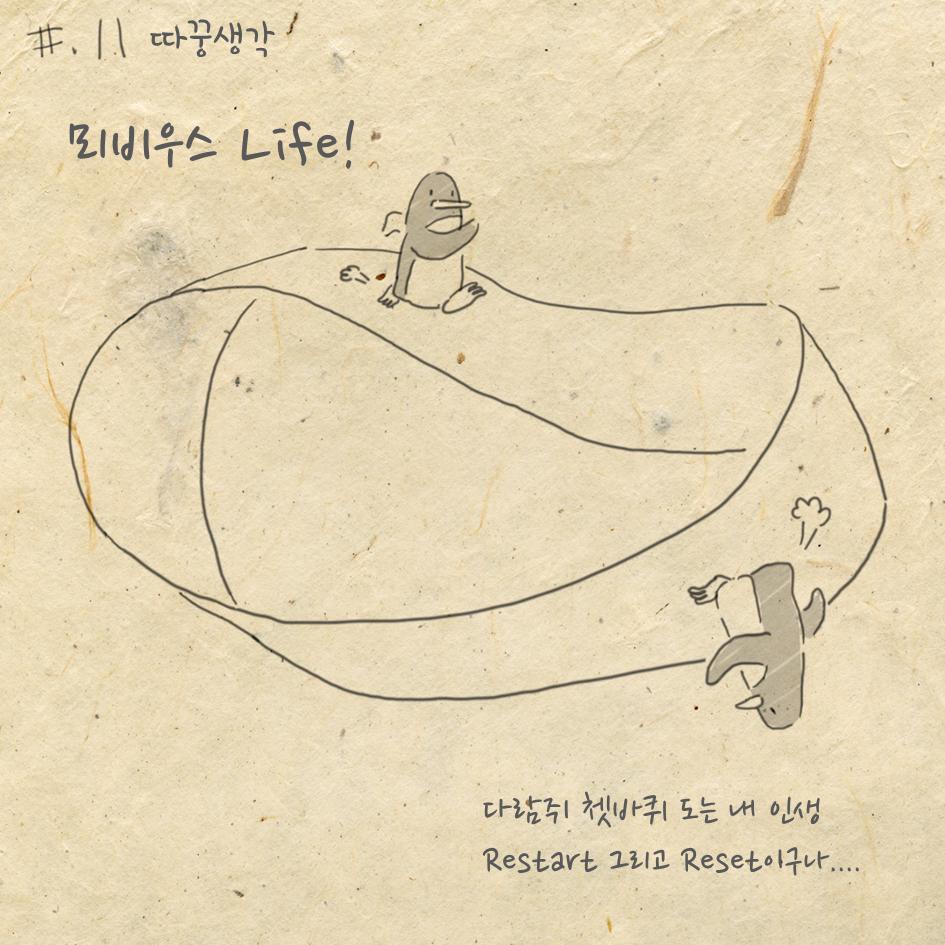 #.11 따꿍생각
뫼비우스 Life!
다람쥐 쳇바퀴 도는 내 인생
Restart 그리고 Reset이구나....